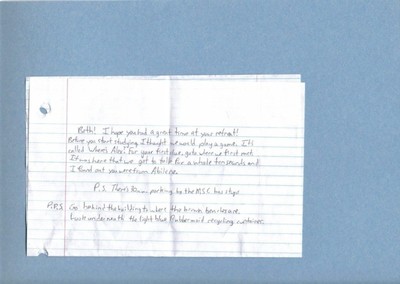 Beth! I hope you had a great time at your retreat!
Before you start studying, I thought we would play a game. It's
called Where's Alex? For your first clue, go to where we first met.
It was here that we got to talk for a whole ten seconds and
I found out you were from Abilene.
P.S. There's 30 min parking by the MSC bus stops
P.P.S Go behind the building to where the brown benches are.
Look underneath the light blue Rubbermaid recycling container.